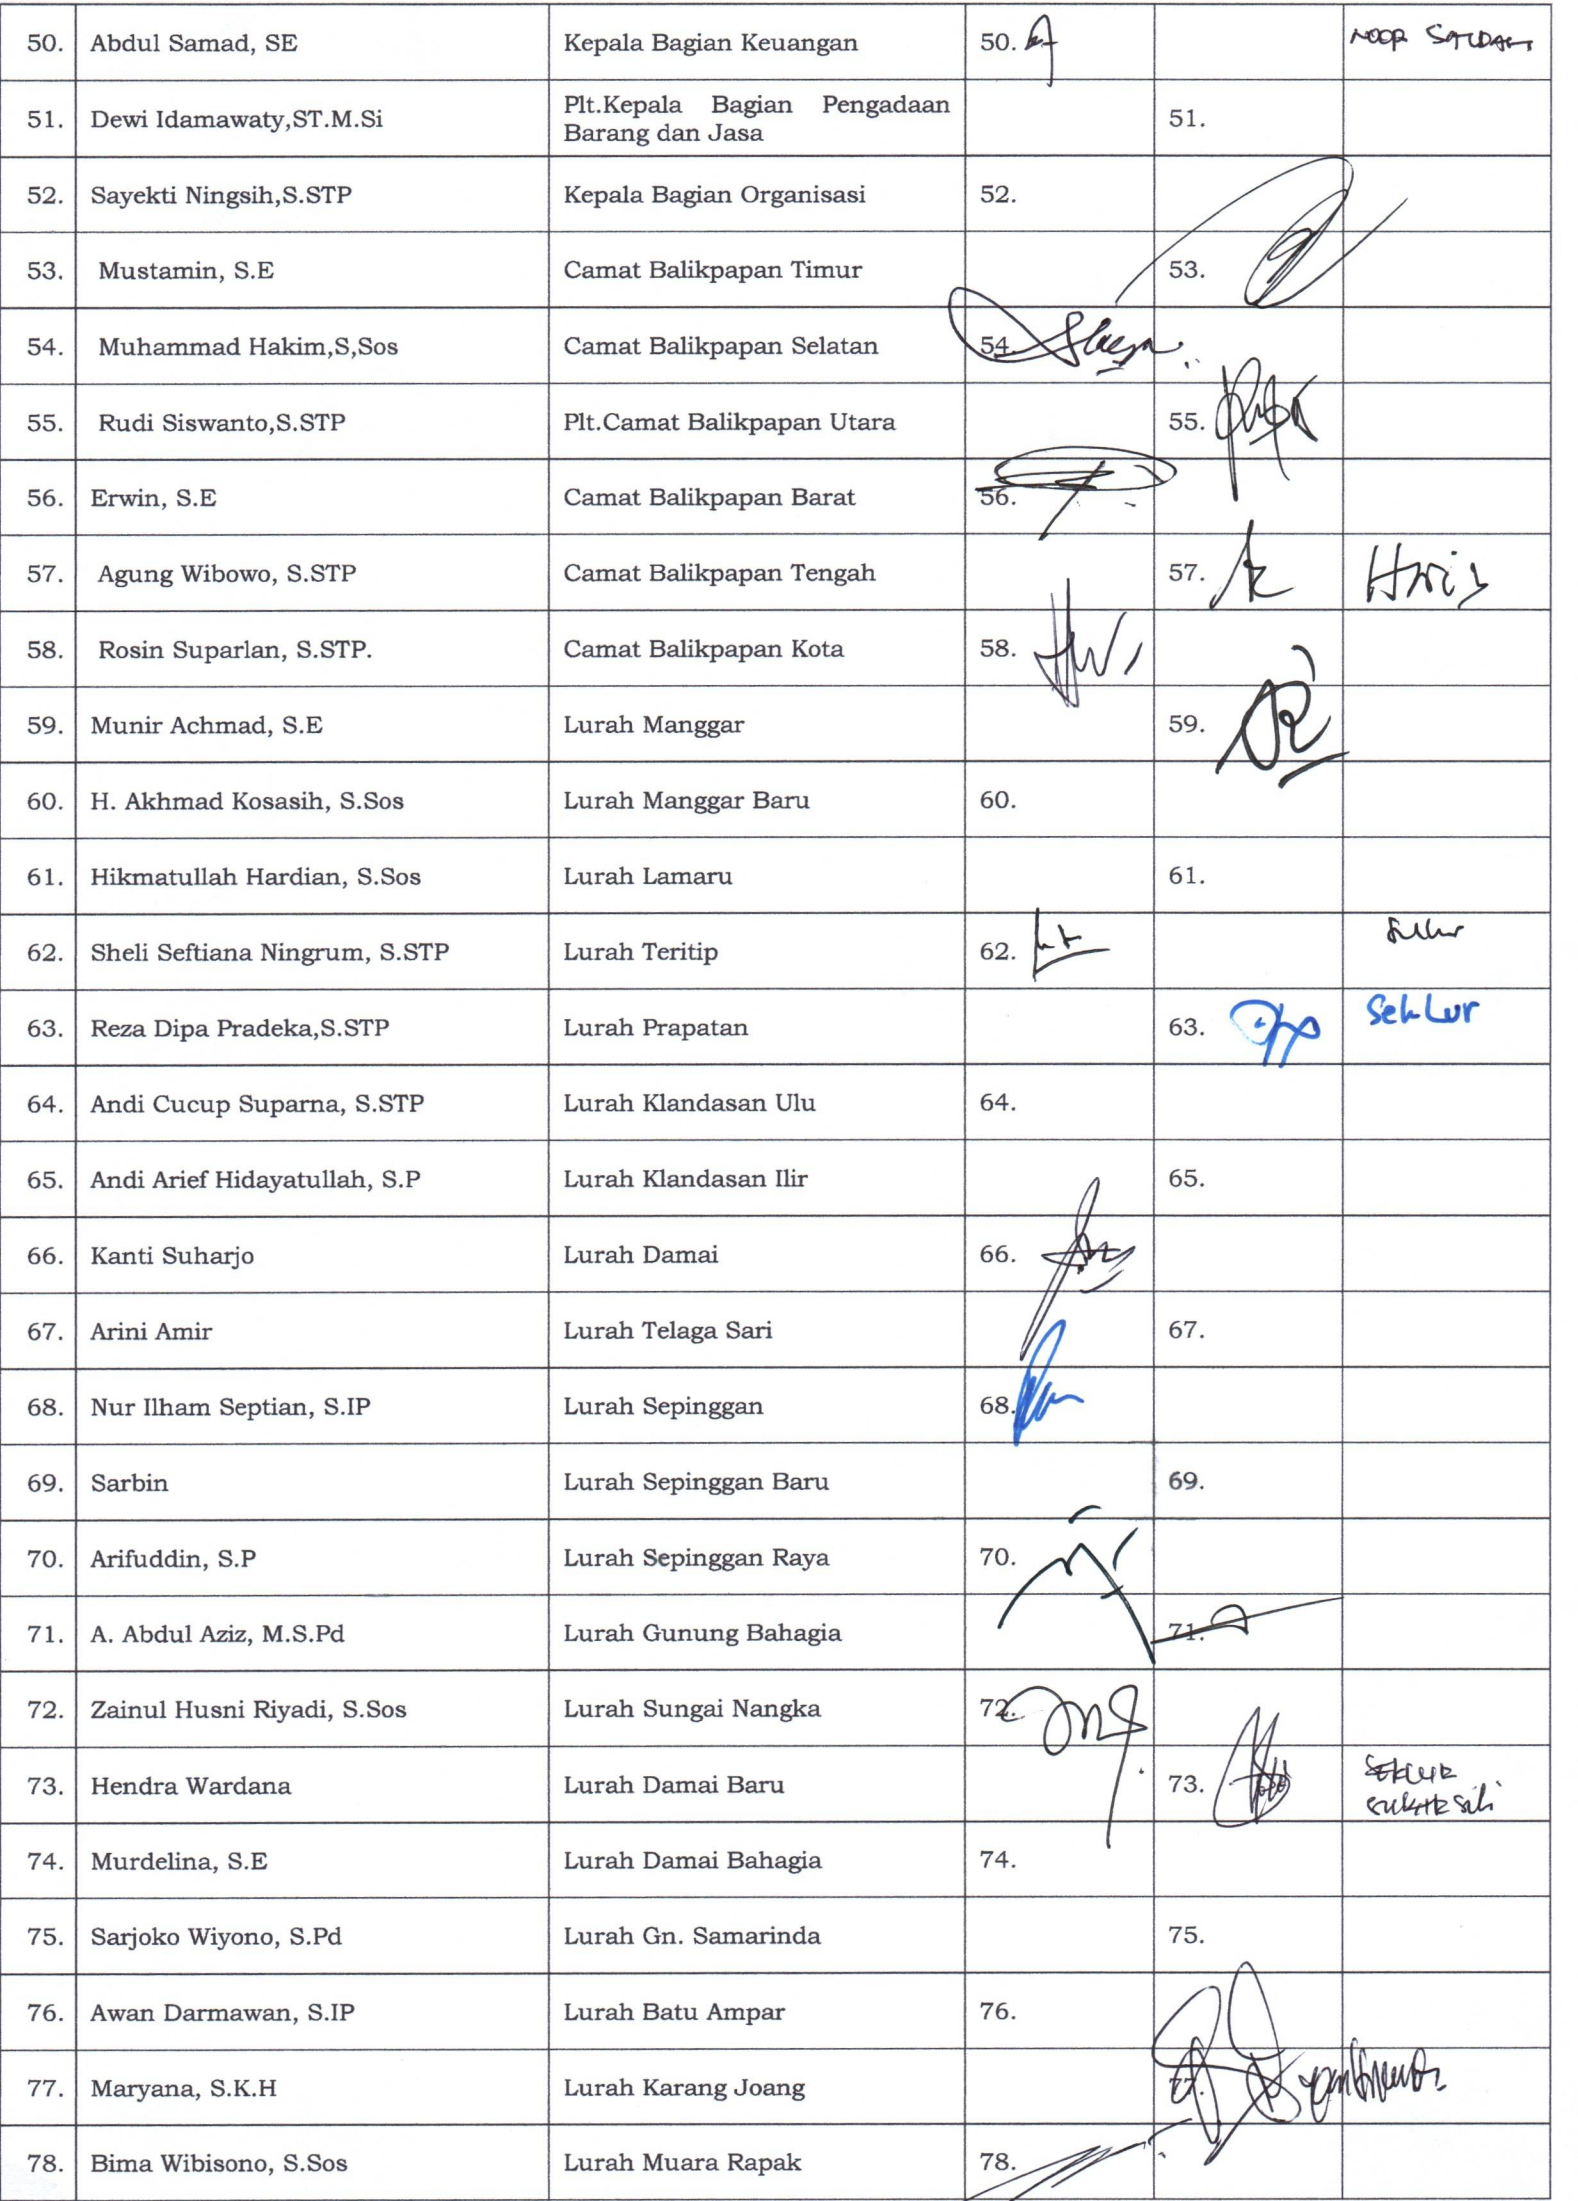 50. Abdul Samad, SE Kepala Bagian Keuangan 50.
51. Dewi Idamawaty,ST.M.Si Plt.Kepala Bagian Pengadaan
Barang dan Jasa 51.
52. Sayekti Ningsih,S.STP Kepala Bagian Organisasi 52.
53. Mustamin, S.E Camat Balikpapan Timur 53.
54. Muhammad Hakim,S,Sos Camat Balikpapan Selatan 54.
55. Rudi Siswanto,S.STP Plt.Camat Balikpapan Utara 55.
56. Erwin, S.E Camat Balikpapan Barat 56.
57. Agung Wibowo, S.STP Camat Balikpapan Tengah 57.
58. Rosin Suparlan, S.STP. Camat Balikpapan Kota 58.
59. Munir Achmad, S.E Lurah Manggar 59.
60. H. Akhmad Kosasih, S.Sos Lurah Manggar Baru 60.
61. Hikmatullah Hardian, S.Sos Lurah Lamaru 61.
62. Sheli Seftiana Ningrum, S.STP Lurah Teritip 62.
63. Reza Dipa Pradeka,S.STP Lurah Prapatan 63. SekLur
64. Andi Cucup Suparna, S.STP Lurah Klandasan Ulu 64.
65. Andi Arief Hidayatullah, S.P Lurah Klandasan Ilir 65.
66. Kanti Suharjo Lurah Damai 66.
67. Arini Amir Lurah Telaga Sari 67.
68. Nur Ilham Septian, S.IP Lurah Sepinggan 68.
69. Sarbin Lurah Sepinggan Baru 69.
70. Arifuddin, S.P Lurah Sepinggan Raya 70.
71. A. Abdul Aziz, M.S.Pd Lurah Gunung Bahagia 71.
72. Zainul Husni Riyadi, S.Sos Lurah Sungai Nangka 72.
73. Hendra Wardana Lurah Damai Baru 73.
74. Murdelina, S.E Lurah Damai Bahagia 74.
75. Sarjoko Wiyono, S.Pd Lurah Gn. Samarinda 75.
76. Awan Darmawan, S.IP Lurah Batu Ampar 76.
77. Maryana, S.K.H Lurah Karang Joang 77.
78. Bima Wibisono, S.Sos Lurah Muara Rapak 78.